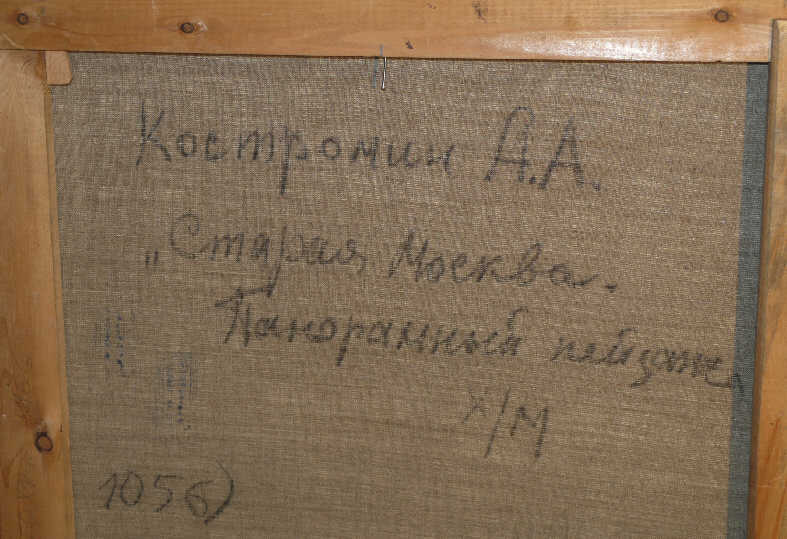 Костромин А.А.
„Старая Москва.
Панорамный пейзаж"
х/м
1056)